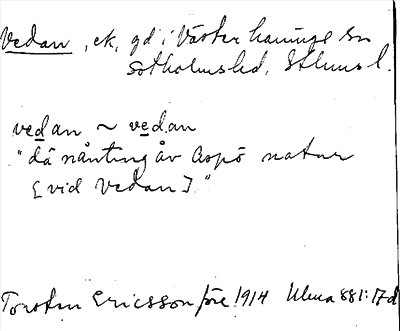 Vedan, ek, gd i Västerhaninge sn
Sotholms hd, Sthms l.
vedan ~ vedan
"dä nånting åv Aspö natur
[vid Vedan]."
Torsten Ericsson före 1914 Ulma 881:17d